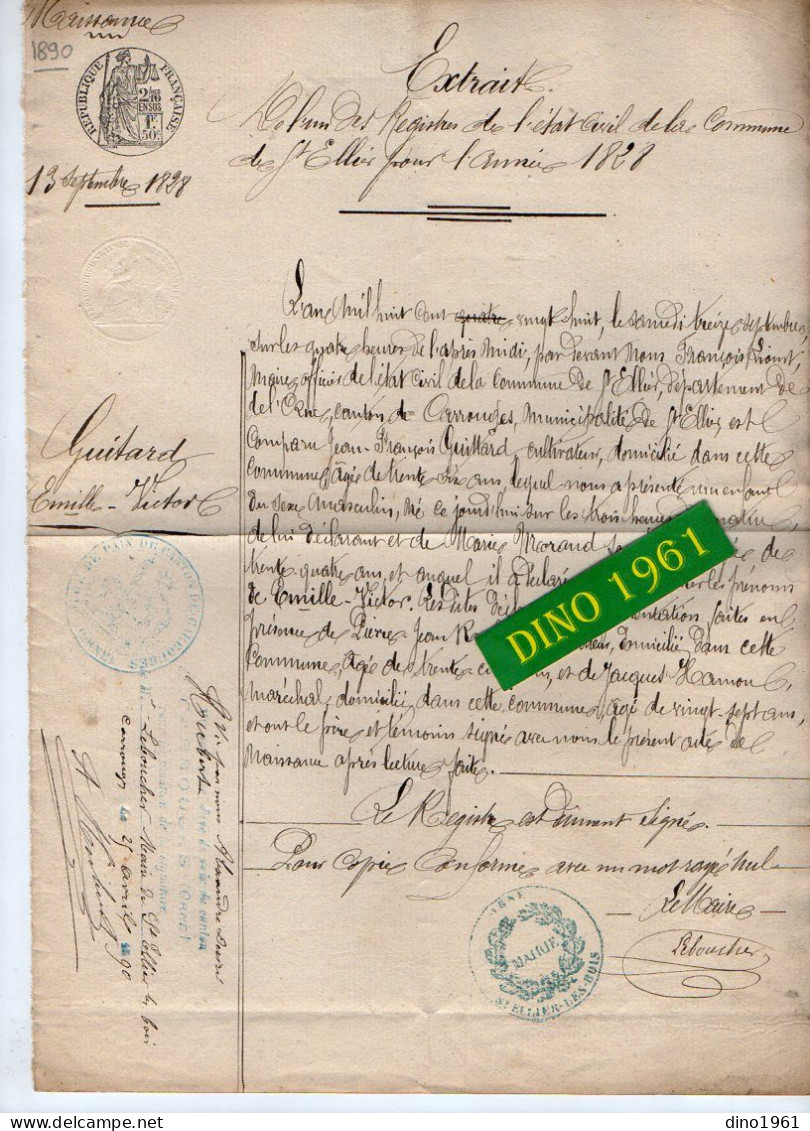 Naissance
1890
RÉPUBLIQUE FRANÇAISE
2/10 EN SUS
1F 50c
13 Septembre 1828
Extrait
De l'un des Registres de l'état Civil de la Commune
de St Ellier pour l'année 1828
L'an Mil huit cent quatre vingt huit, le samedi treize septembre,
sur les quatre heures de l'après midi, par devant Nous François
Maire officier de l'état Civil de la Commune de St Ellier, département de
de l'Orne, canton de Carrouges, Municipalité de St Ellier, est
Comparu Jean-François Guittard, cultivateur, domicilié dans cette
Commune, âgé de trente six ans, lequel nous a présenté un enfant
du sexe Masculin, né ce jourd'hui sur les trois heures du matin,
de lui déclarant et de Marie Morand de
trente-quatre ans, et auquel il a déclaré les prénoms
de Emille-Victor. Les dites faites en
présence de Pierre Jean domicilié dans cette
Commune, âgé de trente et de Jacques Hamon
Maréchal, domicilié, dans cette commune, âgé de vingt sept ans,
et ont le père et témoins signé avec nous le présent acte de
Naissance après lecture faite.
Le Registre est dûment signé.
Pour copie Conforme avec un mot rayé nul
Le Maire
Leboucher
Guitard
Emille-Victor
JUSTICE DE PAIX DU CANTON DE CARROUGES
Vu par nous Alexandre
juge de paix du canton
de CARROUGES (ORNE)
Leboucher Maire de St Ellier les bois
Carrouges le 25 avril 1890
ORNE
MAIRIE
ST ELLIER-LES-BOIS
DINO 1961
dino1961